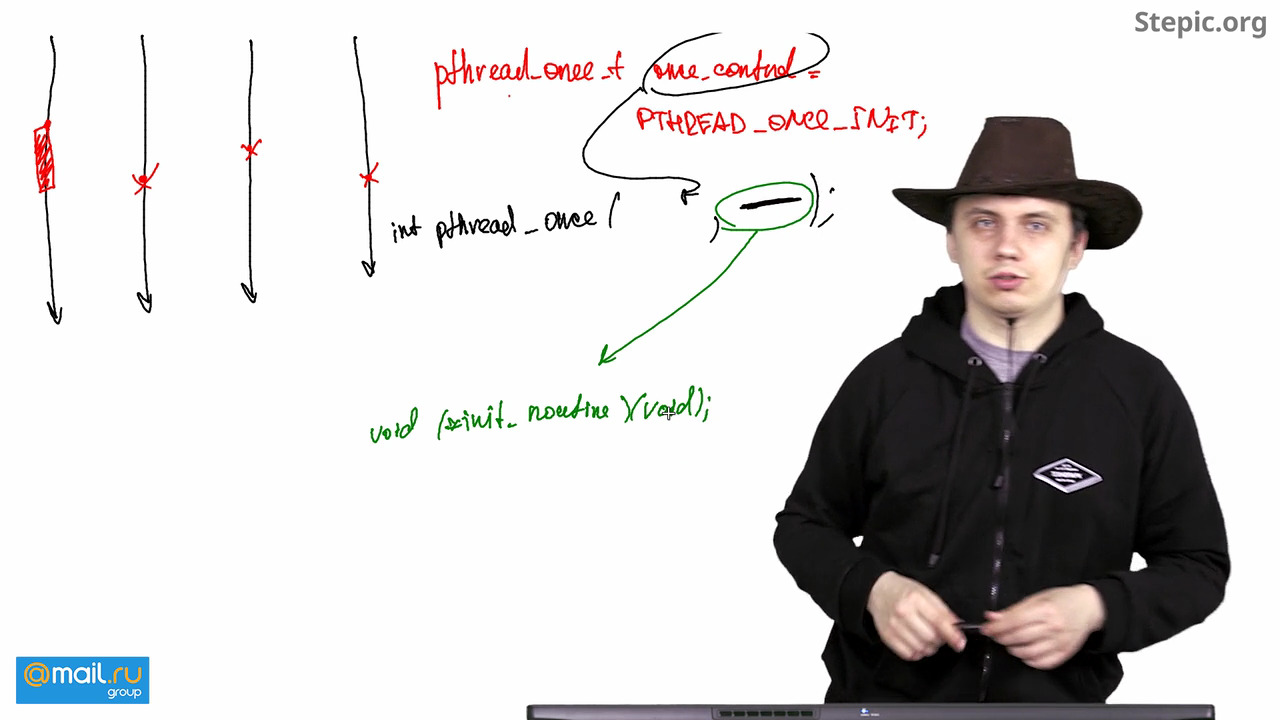 Stepic.org
pthread_once_t once_control =
PTHREAD_ONCE_INIT;
int pthread_once ( , );
void (*init_routine)(void);
@mail.ru
group